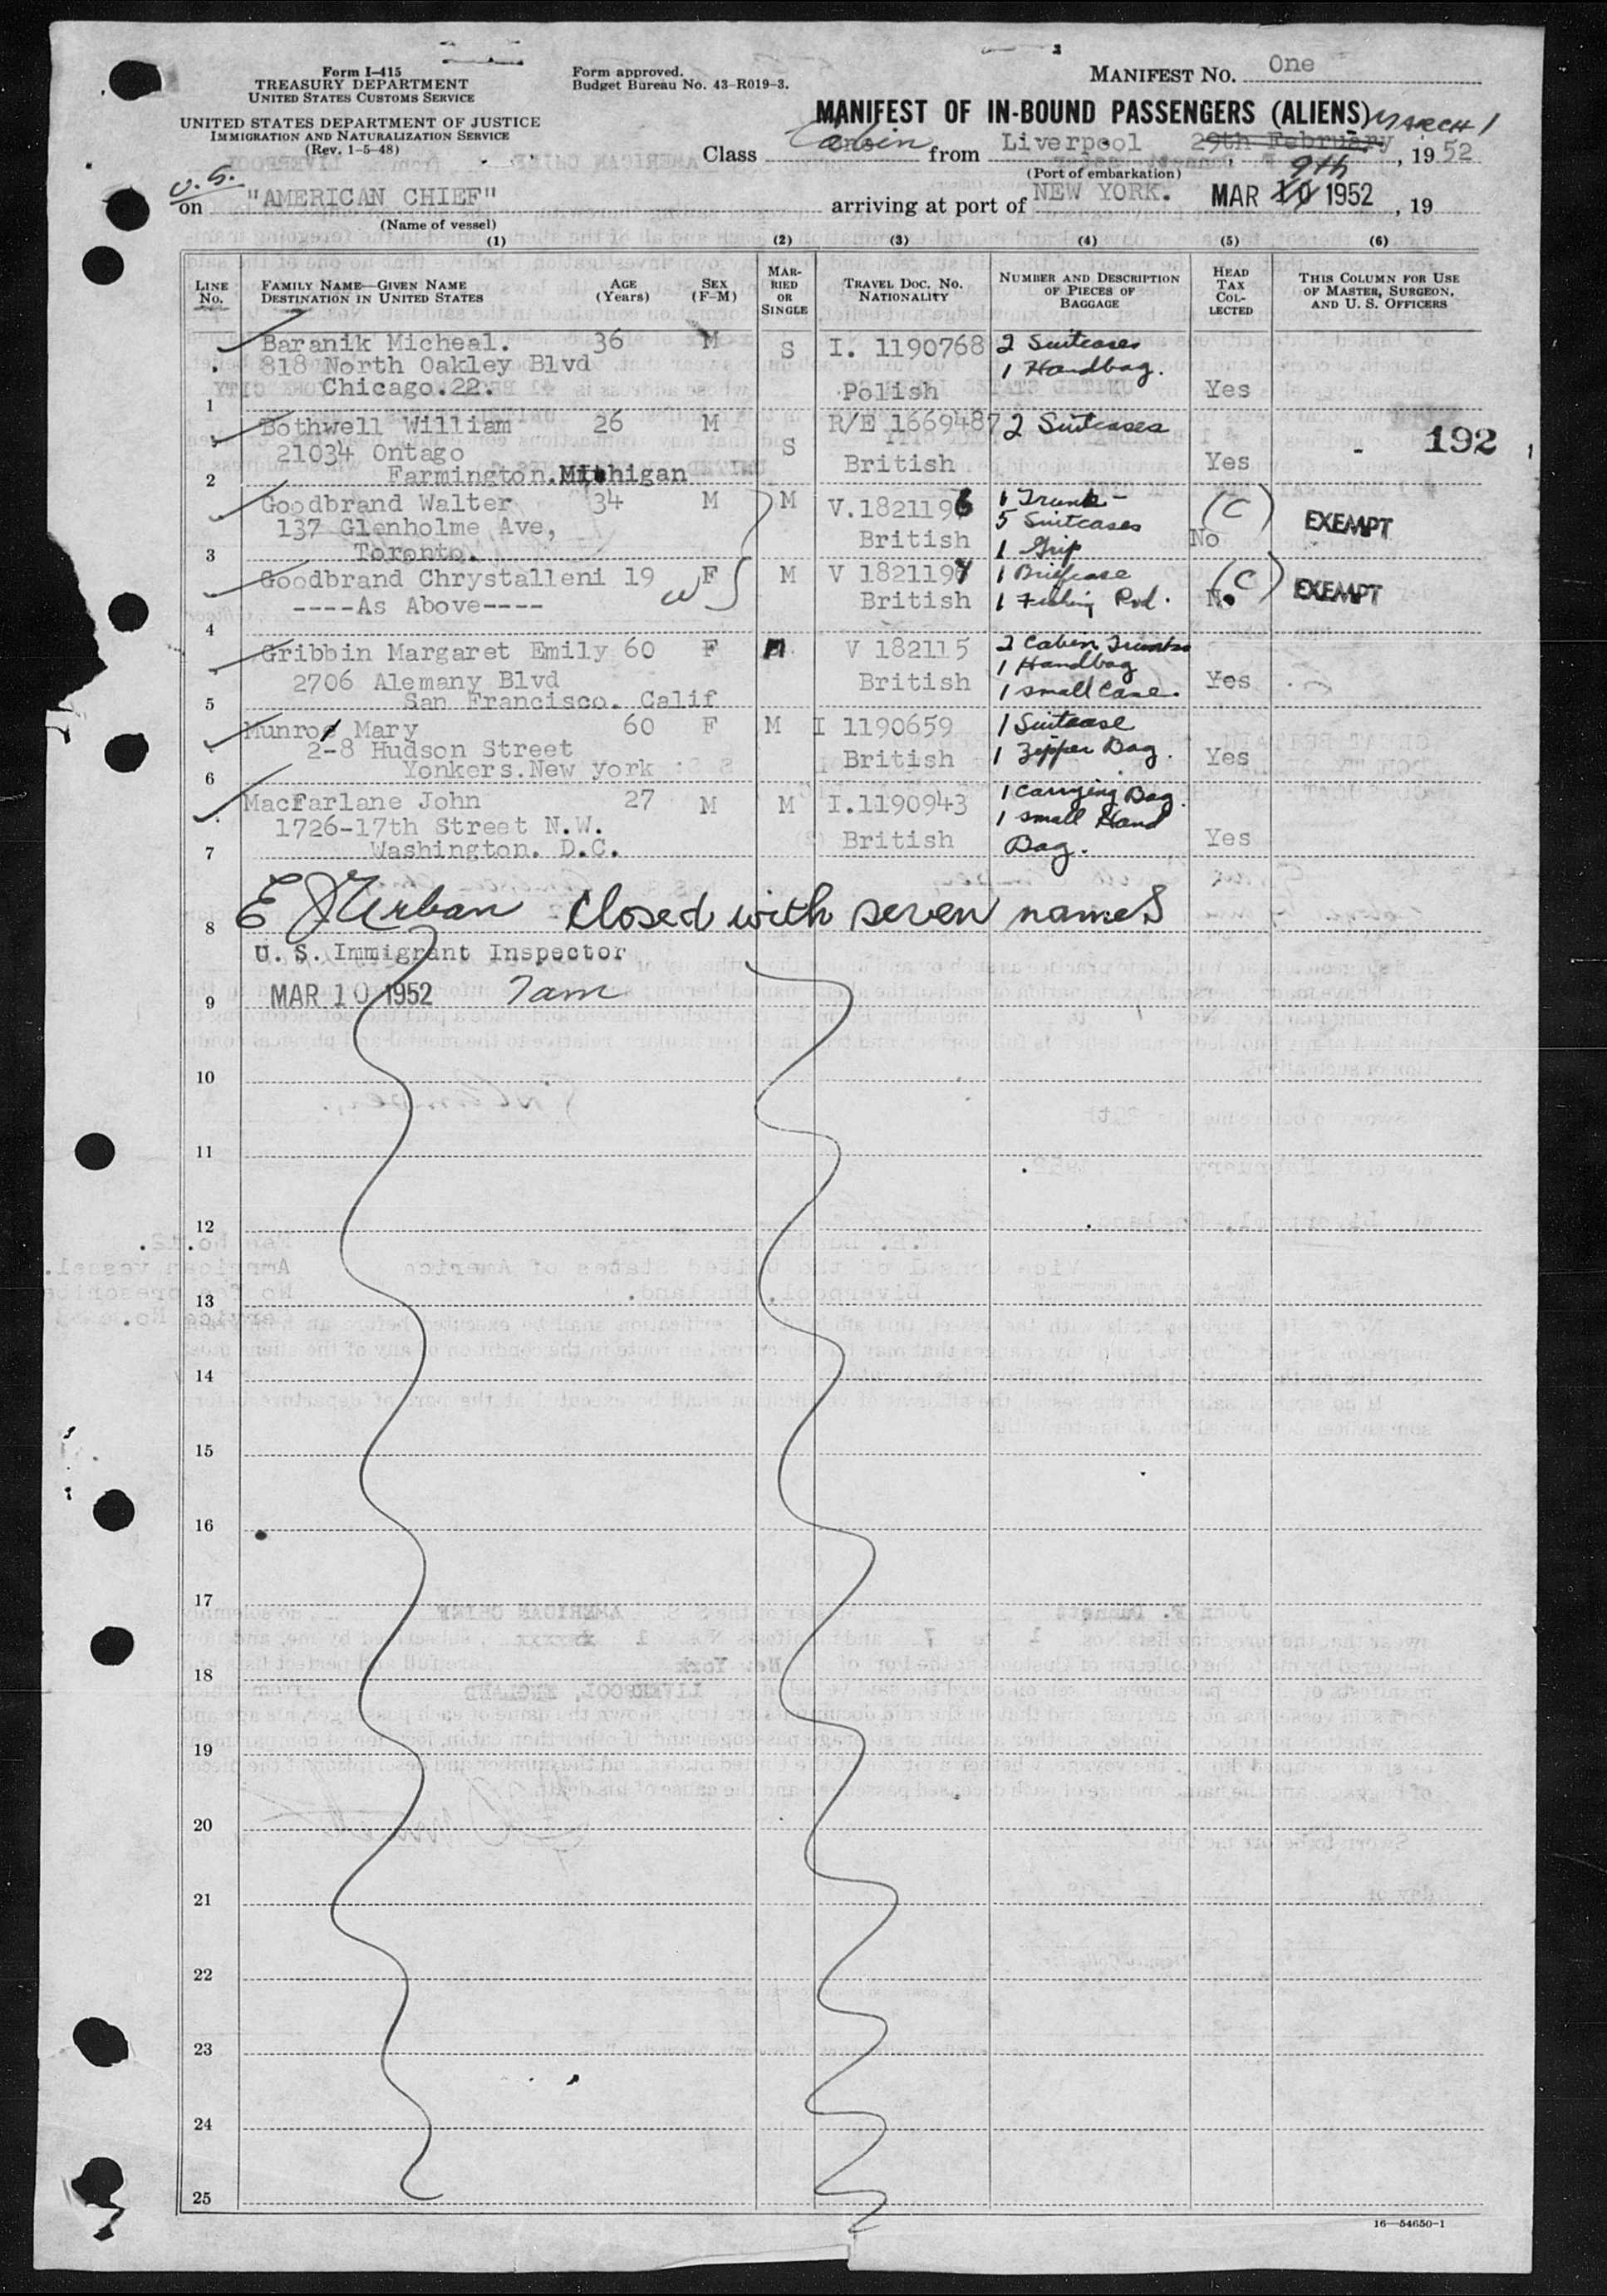 Form I-415
TREASURY DEPARTMENT
UNITED STATES CUSTOMS SERVICE
UNITED STATES DEPARTMENT OF JUSTICE
IMMIGRATION AND NATURALIZATION SERVICE
(Rev. 1-5-48)
Form approved.
Budget Bureau No. 43-R019-3.
MANIFEST No. One
MANIFEST OF IN-BOUND PASSENGERS (ALIENS) MARCH 1
Class Cabin from Liverpool 29th February, 1952
(Port of embarkation)
9th
on "AMERICAN CHIEF" arriving at port of NEW YORK. MAR 10 1952, 19
(Name of vessel)
(1) (2) (3) (4) (5) (6)
LINE No. FAMILY NAME—GIVEN NAME DESTINATION IN UNITED STATES AGE (Years) SEX (F-M) MARRIED OR SINGLE TRAVEL DOC. NO. NATIONALITY NUMBER AND DESCRIPTION OF PIECES OF BAGGAGE HEAD TAX COLLECTED THIS COLUMN FOR USE OF MASTER, SURGEON, AND U. S. OFFICERS
Baranik Micheal. 36 M S I. 1190768 2 Suitcases
818 North Oakley Blvd 1 Handbag.
1 Chicago.22. Polish Yes
Bothwell William 26 M S R/E 1669487 2 Suitcases
21034 Ontago British Yes 192
2 Farmington.Michigan
Goodbrand Walter 34 M M V.1821196 1 Trunk (C) EXEMPT
137 Glenholme Ave, British 5 Suitcases No
3 Toronto. 1 Grip
Goodbrand Chrystalleni 19 W F M V 1821197 1 Briefcase (C) EXEMPT
----As Above---- British 1 Fishing Rod. No
4
Gribbin Margaret Emily 60 F M V 182115 2 Cabin Trunks
2706 Alemany Blvd British 1 Handbag Yes
5 San Francisco. Calif 1 small Case.
Munroe Mary 60 F M I 1190659 1 Suitcase
2-8 Hudson Street British 1 Zipper Bag. Yes
6 Yonkers.New york
MacFarlane John 27 M M I.1190943 1 Carrying Bag.
1726-17th Street N.W. British 1 small Hand Yes
7 Washington. D.C. Bag.
8 E J Urban Closed with seven names
U. S. Immigrant Inspector
9 MAR 10 1952 7am
10
11
12
13
14
15
16
17
18
19
20
21
22
23
24
25
16—54650-1